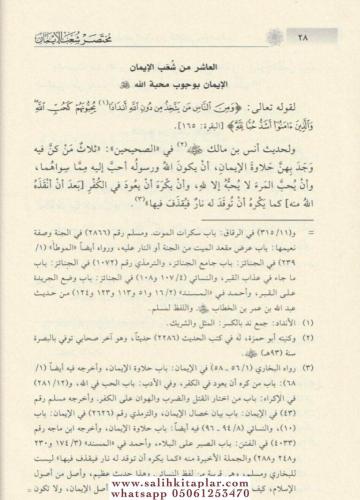 ٢٨ مختصر شعب الإيمان
العاشر من شُعَب الإيمان
الإيمان بوجوب محبة الله ﷻ
لقوله تعالى: ﴿وَمِنَ النَّاسِ مَن يَتَّخِذُ مِن دُونِ اللَّهِ أَندَادًا(١) يُحِبُّونَهُمْ كَحُبِّ اللَّهِ
وَالَّذِينَ ءَامَنُوٓا أَشَدُّ حُبًّا لِّلَّهِ﴾ [البقرة: ١٦٥].
ولحديث أنس بن مالك ﷺ(٢) في «الصحيحين»: «ثلاثٌ مَنْ كنَّ فيه
وَجَدَ بِهِنَّ حَلاوةَ الإيمانِ، أنْ يكونَ اللهُ ورسولُه أحبَّ إليه مِمَّا سِواهُما،
وأنْ يُحبَّ المَرءَ لا يُحبُّهُ إلا للهِ، وأنْ يَكْرَهَ أنْ يعودَ في الكُفْرِ [بَعدَ أنْ أنْقَذَهُ
اللهُ منه] كما يَكْرَهُ أنْ تُوقَدَ له نارٌ فَيُقذَفَ فيها»(٣).
= و(٣١٥/١١) في الرقاق: باب سكرات الموت. ومسلم رقم (٢٨٦٦) في الجنة وصفة
نعيمها: باب عرض مقعد الميت من الجنة أو النار عليه، ورواه أيضاً «الموطأ» (١/
٢٣٩) في الجنائز: باب جامع الجنائز، والترمذي رقم (١٠٧٢) في الجنائز: باب
ما جاء في عذاب القبر، والنسائي (١٠٧/٤ و١٠٨) في الجنائز: باب وضع الجريدة
على القبر، وأحمد في «المسند» (١٦/٢ و٥١ و١١٣ و١٢٣ و١٢٤) من حديث
عبد الله بن عمر بن الخطاب، واللفظ لمسلم.
(١) الأنداد: جمع ند بالكسر: المثل والشريك.
(٢) وكنيته أبو حمزة، له في كتب الحديث (٢٢٨٦) حديثاً، وهو آخر صحابي توفي بالبصرة
سنة (٩٣هـ).
(٣) رواه البخاري (٥٦/١ ـ ٥٨) في الإيمان: باب حلاوة الإيمان، وأخرجه فيه أيضاً (١/
٦٨): باب من كره أن يعود في الكفر، وفي الأدب: باب الحب في الله، و(٢٨١/١٢)
في الإكراه: باب من اختار القتل والضرب والهوان على الكفر. وأخرجه مسلم رقم
(٤٣) في الإيمان: باب بيان خصال الإيمان، والترمذي رقم (٢٦٢٦) في الإيمان: باب
(١٠)، والنسائي (٩٤/٨ ـ ٩٦) فيه أيضاً: باب حلاوة الإيمان، وأخرجه ابن ماجه رقم
(٤٠٣٣) في الفتن: باب الصبر على البلاء، وأحمد في «المسند» (١٧٤/٣ و٢٣٠
و٢٤٨ و٢٨٨) والجملة الأخيرة منه «كما يكره أن توقد له نار فيقذف فيها» ليست
للبخاري ومسلم، وهي قريبة من لفظ النسائي. وهذا حديث عظيم، وأصل من أصول
الإسلام، كيف أصل الإيمان، ولا تكون
www.salihkitaplar.com
whatsapp 05061253470